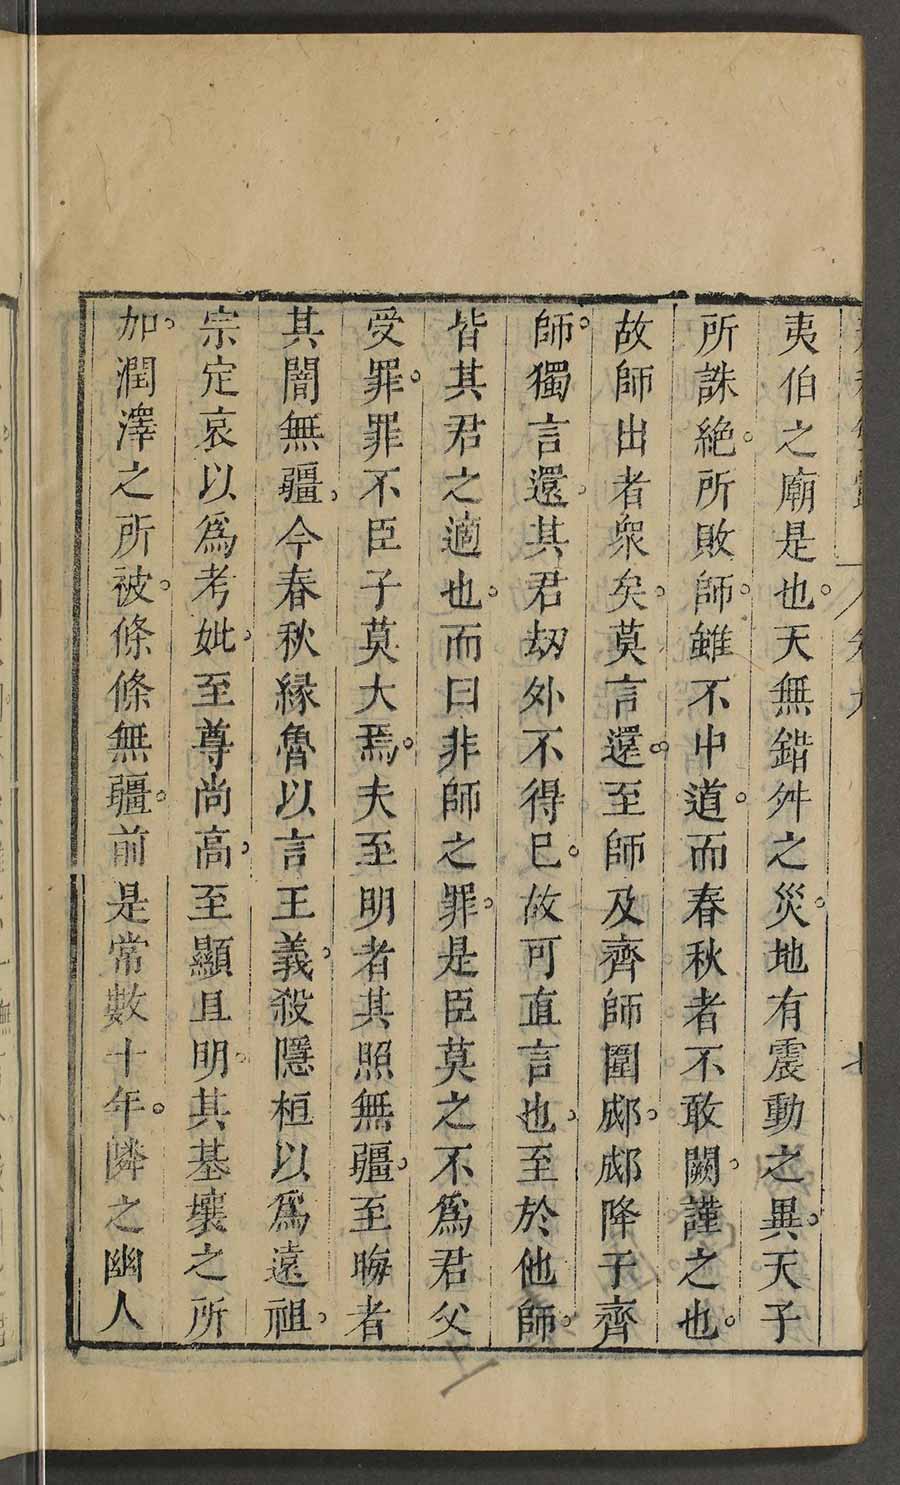 夷伯之廟是也。天無錯舛之災。地有震動之異。天子
所誅絕。所敗師。雖不中道。而春秋者不敢闕。謹之也。
故師出者衆矣。莫言還。至師及齊師圍郕。郕降于齊
師。獨言還。其君劫外不得已。故可直言也。至於他師。
皆其君之適也。而曰非師之罪。是臣莫之不爲君父
受罪。罪不臣子莫大焉。夫至明者其照無疆。至晦者
其闇無疆。今春秋緣魯以言王義。殺隱桓以爲遠祖。
宗定哀以爲考妣。至尊尚高。至顯且明。其基壤之所
加。潤澤之所被。條條無疆。前是常數十年。隣之幽人